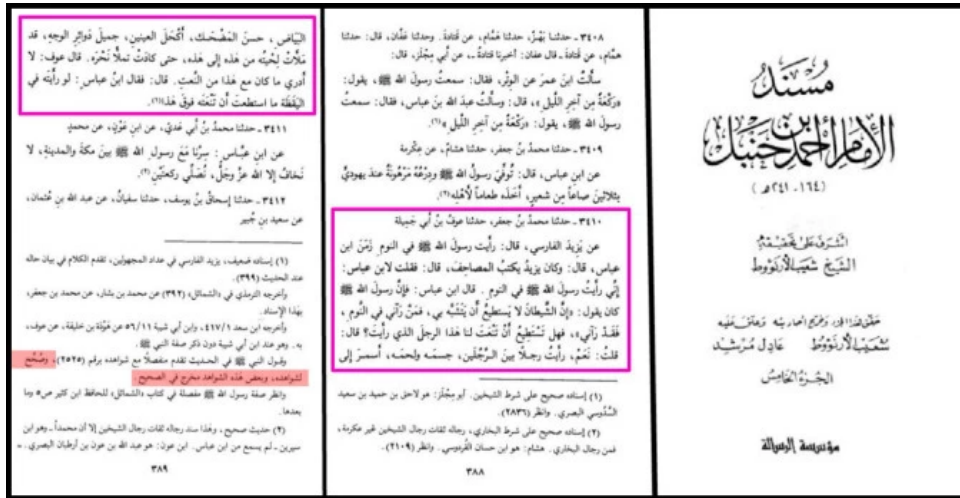 مُسْنَدُ
الإمَامِ أَحْمَد بْنِ حَنْبَل
(١٦٤ - ٢٤١ هـ)
أشرفَ عَلى تحْقيقه
الشَّيْخ شعَيب الأرنؤوط
حَقّق هَذا الجزء وَخرّج أحَاديثه وَعَلّق عَليه
شعَيب الأرنؤوط عَادل مُرشد
الجزءُ الخامِسُ
مؤسسة الرسالة
٣٤٠٨ - حدثنا بَهْزٌ، حدثنا هَمَّام، عن قَتادةَ. وحدثنا عَفَّان، قال: حدثنا
همَّام، عن قَتادة - قال عفان: أخبرنا قتادةُ -، عن أبي مِجْلَز، قال:
سألتُ ابن عمرَ عن الوِتْر، فقال: سمعتُ رسولَ الله ﷺ، يقول:
«رَكْعَةٌ مِن آخِرِ اللَّيلِ»، قال: وسألتُ عبدَ الله بنَ عباس، فقال: سمعتُ
رسولَ الله ﷺ، يقول: «رَكْعَةٌ مِن آخِرِ اللَّيلِ»(١).
٣٤٠٩ - حدثنا محمدُ بنُ جعفر، حدثنا هشامٌ، عن عِكْرمة
عن ابنِ عباس، قال: تُوفِّيَ رسولُ الله ﷺ ودِرْعُه مَرْهُونةٌ عندَ يهوديٍّ
بثلاثينَ صاعاً مِن شعيرٍ، أخَذَه طعاماً لأَهْلِه(٢).
٣٤١٠ - حدثنا محمدُ بنُ جعفر، حدثنا عوفُ بنُ أبي جَمِيلة
عن يَزِيدَ الفارسي، قال: رأيت رسولَ الله ﷺ في النومِ زَمَنَ ابن
عباس، قال: وكان يزيدُ يكتبُ المصاحفَ، قال: فقلت لابن عباس:
إنِّي رأيتُ رسولَ الله ﷺ في النوم. قال ابن عباس: فإنَّ رسولَ الله ﷺ
كان يقول: «إنَّ الشَّيطانَ لا يَستَطيعُ أن يَتَشَبَّه بي، فمَنْ رَآني في النَّومِ،
فَقَدْ رَآني»، فهل تَسْتَطيعُ أَنْ تَنْعَتَ لنا هٰذا الرجلَ الذي رأيتَ؟ قال:
قلتُ: نَعَمْ، رأيتُ رجلاً بينَ الرَّجُلَين، جسمُه ولحمُه، أسمرَ إلى
(١) إسناده صحيح على شرط الشيخين. أبو مِجْلَز: هو لاحق بن حميد بن سعيد
السَّدُوسي البصري. وانظر (٢٨٣٦).
(٢) إسناده صحيح على شرط البخاري، رجاله ثقات رجال الشيخين غير عكرمة،
فمن رجال البخاري. هشام: هو ابن حسان القُردوسي. وانظر (٢١٠٩).
٣٨٨
البَيَاضِ، حسنَ المَضْحَك، أكْحَلَ العينينِ، جميلَ دَوائرِ الوجهِ، قد
مَلأتْ لِحْيتُه مِن هٰذه إلى هٰذه، حتى كادَتْ تملأُ نَحْرَه. قال عوف: لا
أدري ما كان مع هٰذا من النَّعتِ. قال: فقال ابنُ عباس: لو رأيتَه في
اليَقَظَة ما استطعتَ أن تَنْعَتَه فوقَ هٰذا(١).
٣٤١١ - حدثنا محمدُ بنُ أبي عَديٍّ، عن ابنِ عَوْنٍ، عن محمدٍ
عن ابنِ عبَّاس: سِرْنا مَعَ رسولِ الله ﷺ بينَ مكةَ والمدينةِ، لا
نَخافُ إلا الله عزَّ وجلَّ، نُصَلِّي ركعتَينِ(٢).
٣٤١٢ - حدثنا إسحاقُ بنُ يوسف، حدثنا سفيانُ، عن عبد الله بن عُثمان،
عن سعيد بنِ جُبير
(١) إسناده ضعيف، يزيد الفارسي في عداد المجهولين، تقدم الكلام في بيان حاله
عند الحديث (٣٩٩).
وأخرجه الترمذي في «الشمائل» (٣٩٢) عن محمد بن بشار، عن محمد بن جعفر،
بهٰذا الإسناد.
وأخرجه ابن سعد ٤١٧/١، وابن أبي شيبة ٥٦/١١ عن هَوْذَة بن خليفة، عن عوف،
به. وهو عند ابن أبي شيبة دون ذكر صفة النبي ﷺ.
وقول النبي ﷺ في الحديث تقدم منفصلاً مع شواهده برقم (٢٥٢٥)، وصُحِّح
لشواهده، وبعض هٰذه الشواهد مخرج في الصحيح.
وانظر صفة رسول الله ﷺ مفصلة في كتاب «الشمائل» للحافظ ابن كثير ص٥ وما
بعدها.
(٢) حديث صحيح، وهٰذا سند رجاله ثقات رجال الشيخين إلا أن محمداً - وهو ابن
سيرين - لم يسمع من ابن عباس. ابن عون: هو عبد الله بن عون بن أرطبان البصري. =
٣٨٩